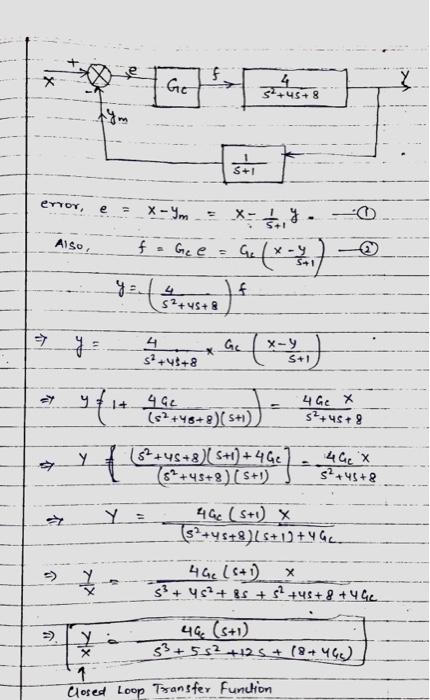 + e f Y
x Gc 4/(s²+4s+8)
- ym
1/(s+1)
error, e = x-ym = x- 1/(s+1) y. —①
Also, f = Gc e = Gc (x - y/(s+1)) —②
y = (4/(s²+4s+8)) f
⇒ y = 4/(s²+4s+8) × Gc (x-y/(s+1))
⇒ y {1+ 4Gc/((s²+4s+8)(s+1))} = 4Gc x/(s²+4s+8)
⇒ Y {((s²+4s+8)(s+1)+4Gc)/((s²+4s+8)(s+1))] = 4Gc x/(s²+4s+8)
⇒ Y = 4Gc (s+1) x/((s²+4s+8)(s+1)+4Gc
⇒ Y/x = 4Gc (s+1) x/(s³+4s²+8s+s²+4s+8+4Gc
⇒ Y/x = 4Gc (s+1)/(s³+5s²+12s+(8+4Gc))
↑
Closed Loop Transfer Function